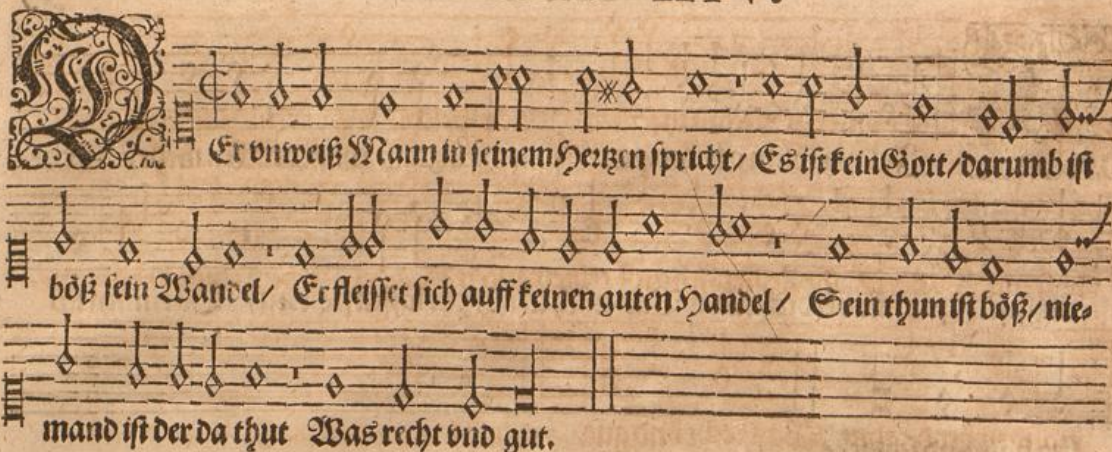 DEr vnweiß Mann in seinem Hertzen spricht/ Es ist kein Gott/ darumb ist
böß sein Wandel/ Er fleisset sich auff keinen guten Handel/ Sein thun ist böß/ nie⸗
mand ist der da thut Was recht vnd gut.